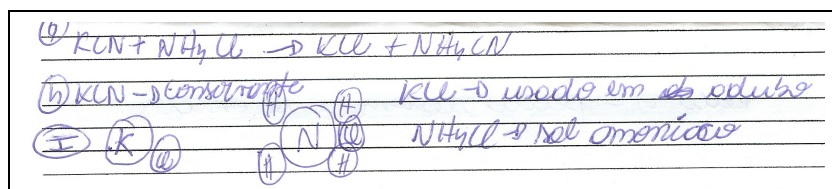 a) KCN + NH4Cl → KCl + NH4CN
b) KCN → conservante KCl → usado em adubo
I K Cl N H H Cl H H NH4Cl → sal amoníaco